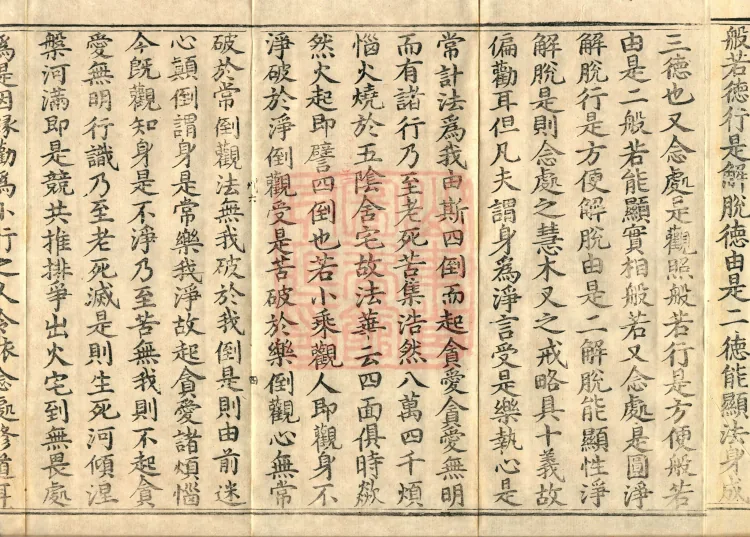 般若德行是解脫德由是二德能顯法身成
三德也又念處是觀照般若行是方便般若
由是二般若能顯實相般若又念處是圓淨
解脫行是方便解脫由是二解脫能顯性淨
解脫是則念處之慧木叉之戒略具十義故
偏勸耳但凡夫謂身為淨言受是樂執心是
常計法為我由斯四倒而起貪愛貪愛無明
而有諸行乃至老死苦集浩然八萬四千煩
惱火燒於五陰舍宅故法華云四面俱時歘
然火起即譬四倒也若小乘觀人即觀身不
淨破於淨倒觀受是苦破於樂倒觀心無常
破於常倒觀法無我破於我倒是則由前迷
心顛倒謂身是常樂我淨故起貪愛諸煩惱
今既觀知身是不淨乃至苦無我則不起貪
愛無明行識乃至老死滅是則生死河傾涅
槃河滿即是競共推排爭出火宅到無畏處
為是因緣勸為小行之人令依念處修道耳